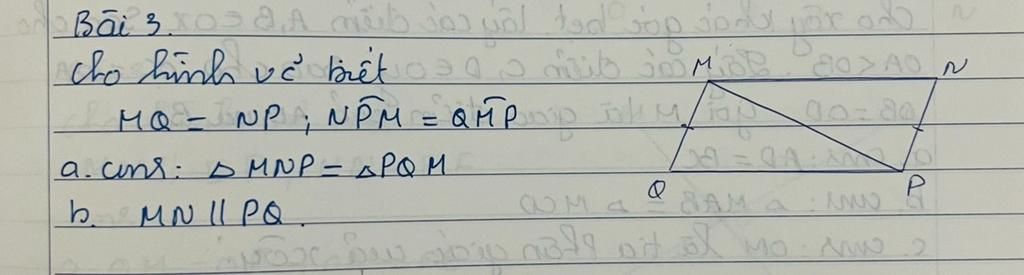 Bài 3.
Cho hình vẽ biết
MQ = NP ; NP̂M = QM̂P
a. cmr: △ MNP = △ PQM
b. MN // PQ.
M
N
Q
P